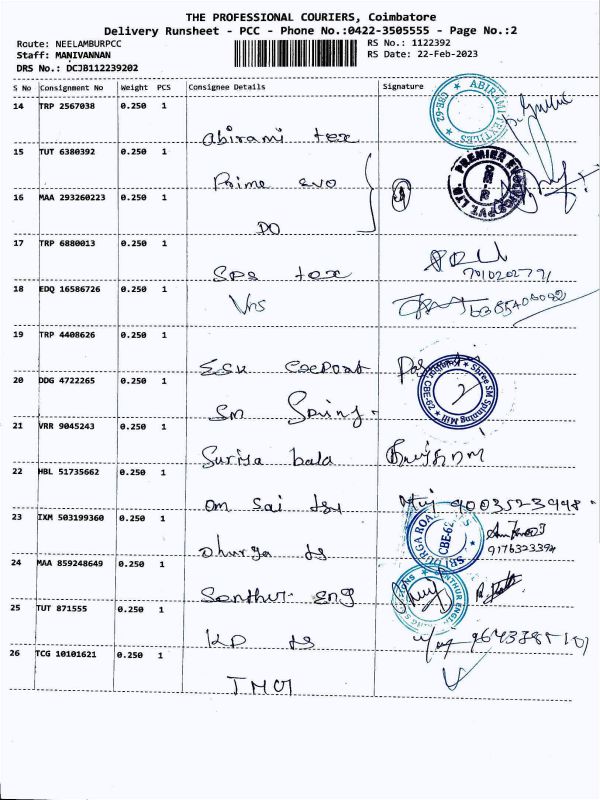 THE PROFESSIONAL COURIERS, Coimbatore
Delivery Runsheet - PCC - Phone No.:0422-3505555 - Page No.:2
Route: NEELAMBURPCC
RS No.: 1122392
Staff: MANIVANNAN
RS Date: 22-Feb-2023
DRS No.: DCJB112239202
S No Consignment No Weight PCS Consignee Details Signature
14 TRP 2567038 0.250 1
Abirami tex
ABIRAMI TEXTILES CBE-62
15 TUT 6380392 0.250 1
Prime evo
PREMIER EVOLVICS PVT LTD.
16 MAA 293260223 0.250 1
DO
17 TRP 6880013 0.250 1
Sps tex
7010202771
18 EDQ 16586726 0.250 1
Vns
19 TRP 4408626 0.250 1
20 DDG 4722265 0.250 1
Sm Spining
Shree SM Spinning Mill CBE-62
21 VRR 9045243 0.250 1
Suriya bala
22 HBL 51735662 0.250 1
om sai tex
9003523998
23 IXM 503199360 0.250 1
Dhurga ts
SRI DURGA ROA CBE-62
9176323394
24 MAA 859248649 0.250 1
Senthur eng
25 TUT 871555 0.250 1
KP ts
26 TCG 10101621 0.250 1